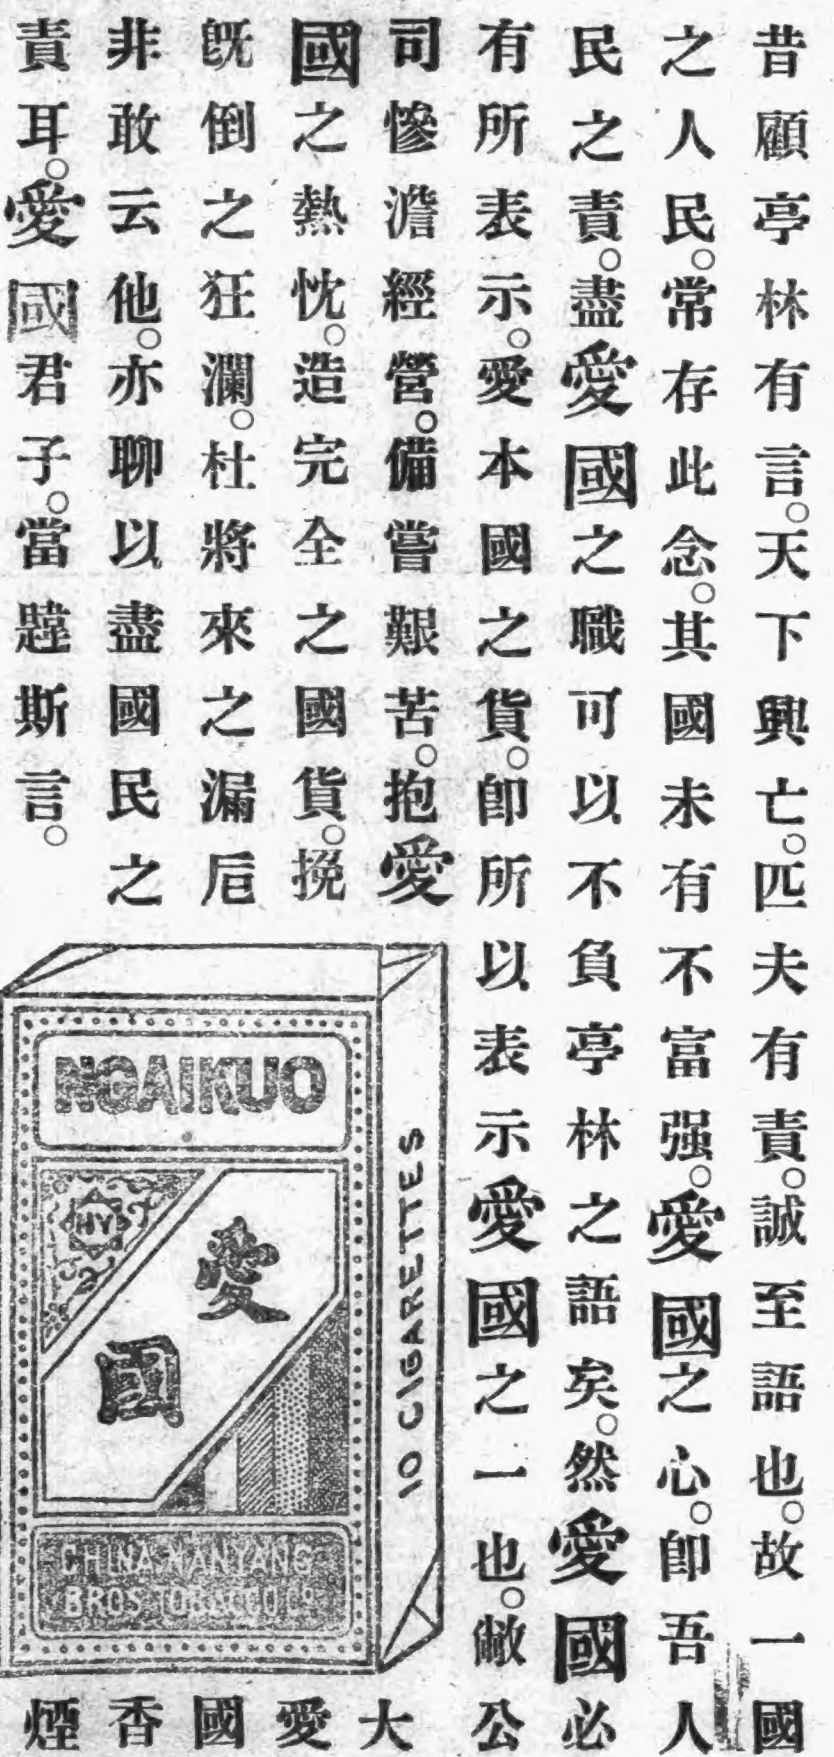 昔顧亭林有言。天下興亡。匹夫有責。誠至語也。故一國
之人民。常存此念。其國未有不富强。愛國之心。卽吾人
民之責。盡愛國之職可以不負亭林之語矣。然愛國必
有所表示。愛本國之貨。卽所以表示愛國之一也。敝公
司慘澹經營。備嘗艱苦。抱愛
國之熱忱。造完全之國貨。挽
旣倒之狂瀾。杜將來之漏巵
非敢云他。亦聊以盡國民之
責耳。愛國君子。當韙斯言。
NGAIKUO
HY
愛國
CHINA NANYANG
BROS TOBACCO Co
10 CIGARETTES
大愛國香煙